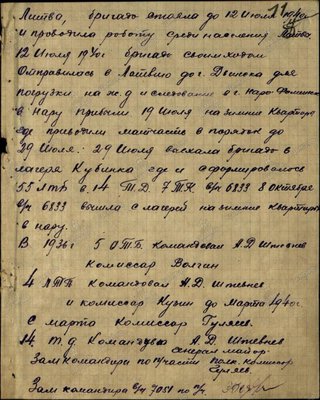 11
Литва, бригада стояла до 12 Июля 1940г
и проводила работу среди населения Литвы.
12 Июля 40г бригада своим ходом
Отправилась в Латвию до г. Двинска для
погрузки на ж.д и следование в г. Наро-Фоминск
в Нару прибыли 19 Июля на зимние квартиры
где приводили матчасть в порядок до
29 Июля. 29 Июля выехала бригада в
лагеря Кубинка где и сформировалось
55 ЛТП в 14 Т.Д. 7 МК в/ч 6833 8 Октября
в/ч 6833 вышла с лагерей на зимние квартиры
в нару.
В 1936г 5 ОТБ. Командовал А.Д Штевнев
Комиссар Волгин
4 ЛТП Командовал А.Д Штевнев
и комиссар Кузин до марта 1940г.
С марта Комиссар Гуляев.
14 т.д. Командовал А.Д Штевнев
Генерал майор.
Зам командира по п/части Полк. Комиссар
Гуляев.
Зам командира в/ч 7051 по п/ч